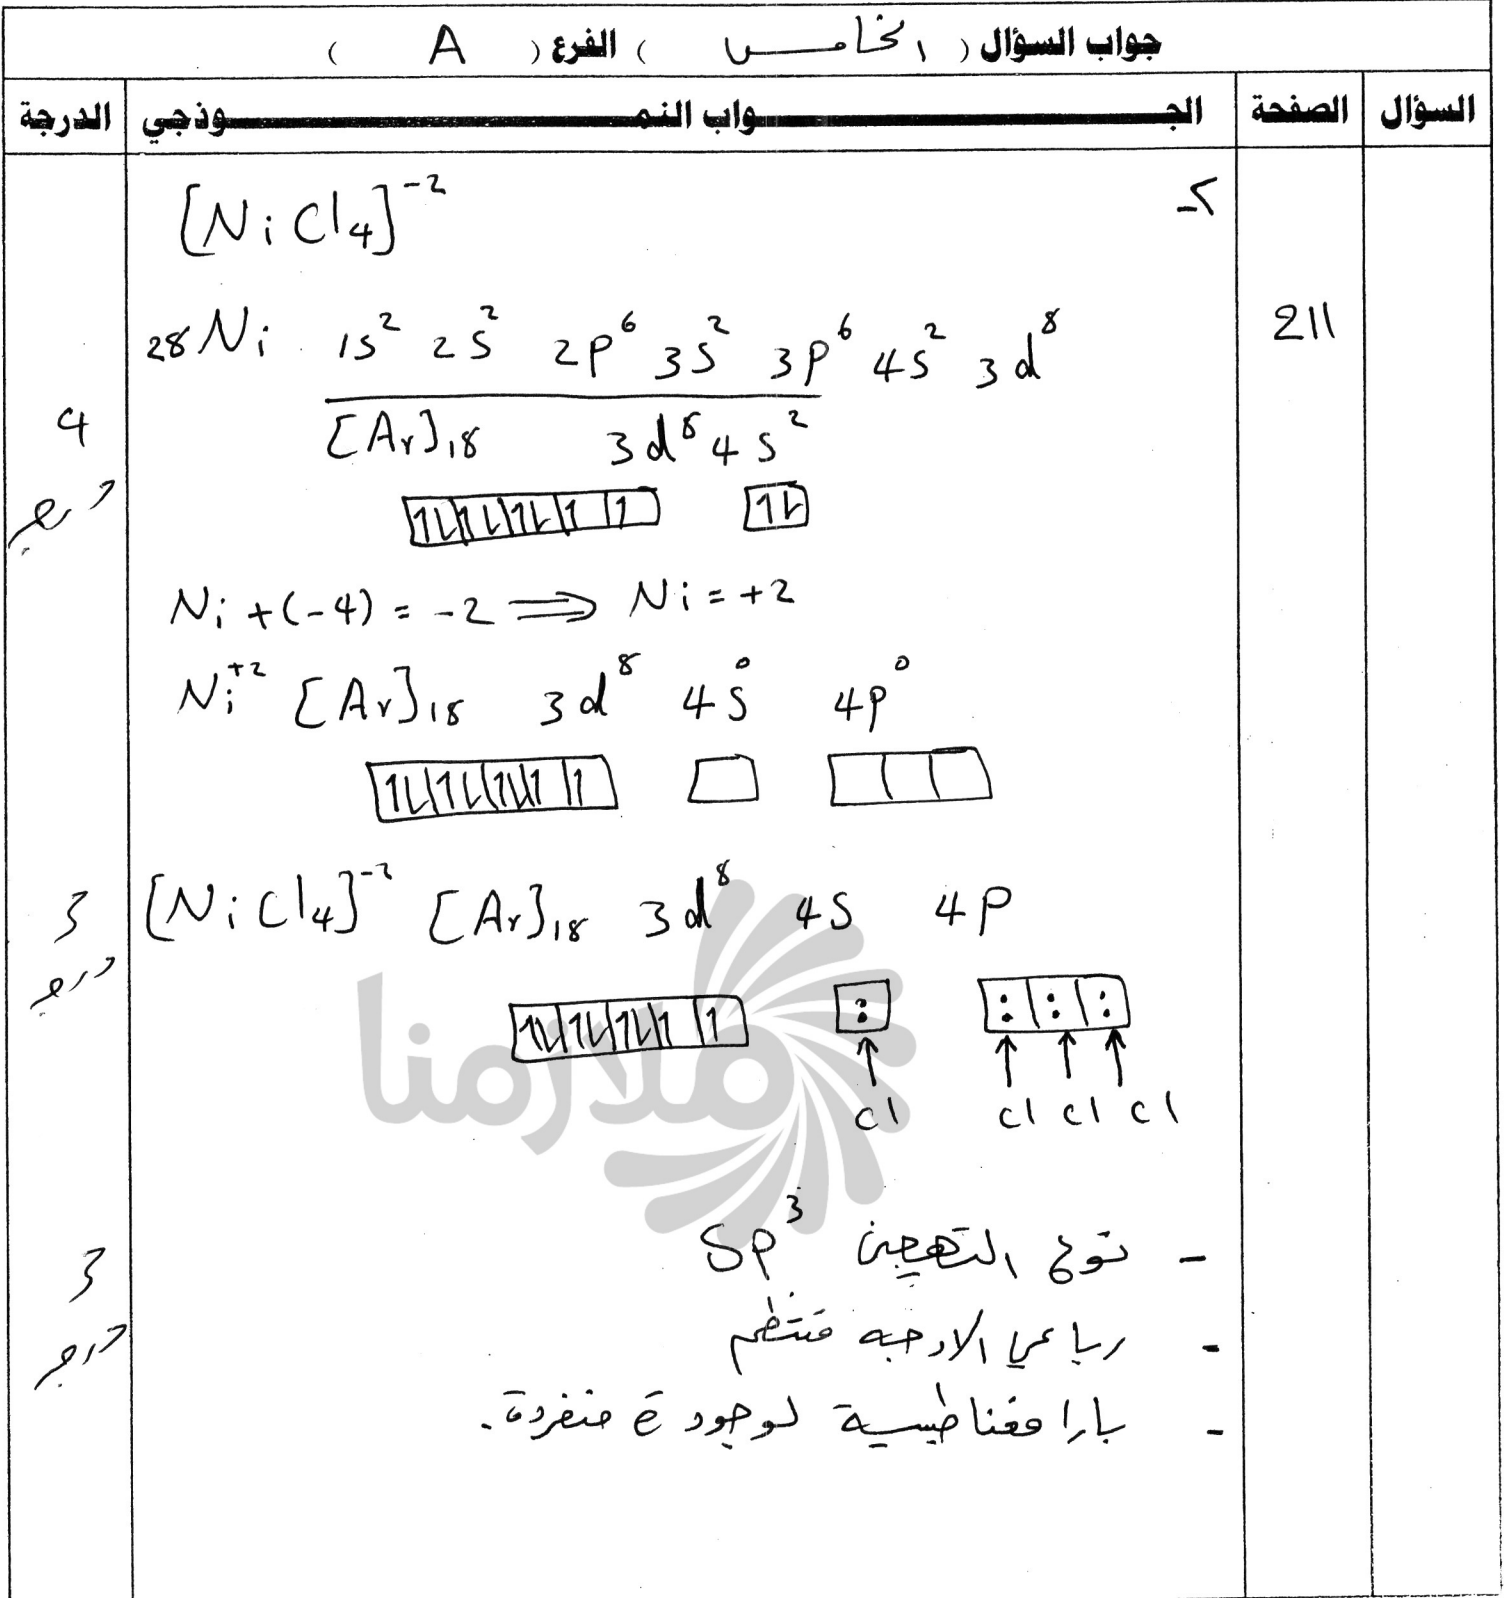 جواب السؤال ( الخامس ) الفرع ( A )
السؤال الصفحة الجـــواب النمـــوذجي الدرجة
[NiCl₄]⁻²
211
₂₈Ni 1s² 2s² 2p⁶ 3s² 3p⁶ 4s² 3d⁸
4
[Ar]₁₈ 3d⁸ 4s²
Ni + (-4) = -2 ⟹ Ni = +2
Ni⁺² [Ar]₁₈ 3d⁸ 4s⁰ 4p⁰
3
[NiCl₄]⁻² [Ar]₁₈ 3d⁸ 4s 4p
Cl Cl Cl Cl
ملازمنا
- نوع التهجين sp³
3
- رباعي الاوجه منتظم
- بارا مغناطيسية لوجود e⁻ منفردة.